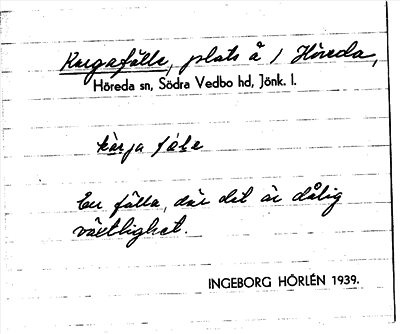 Kargafälle, plats å 1 Höreda,
Höreda sn, Södra Vedbo hd, Jönk. l.
En fälla, där det är dålig
växtlighet.
INGEBORG HÖRLÉN 1939.